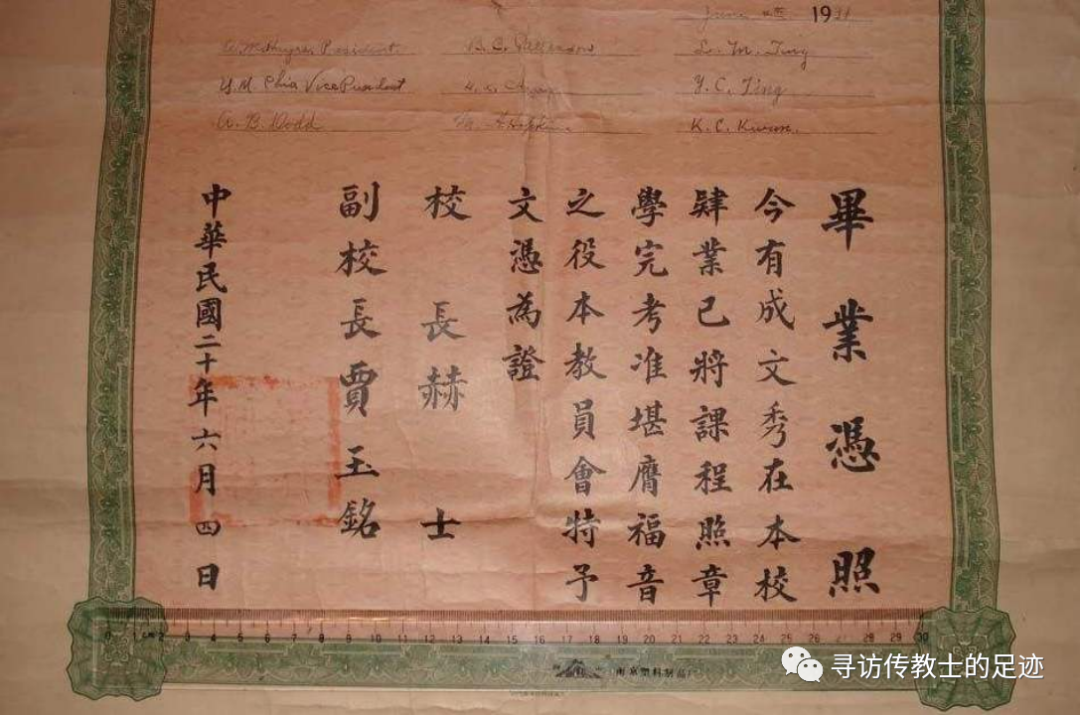 June 1931
President. B. C. Patterson M. Ting
Y. M. Chia Vice President Y. C. Ting
A. B. Dodd M. A. Hopkins K. C. Kwan.
畢業憑照
今有成文秀在本校
肄業已將課程照章
學完考准堪膺福音
之役本教員會特予
文憑為證
校長赫士
副校長賈玉銘
中華民國二十年六月四日
0 1 cm 2 3 4 5 6 7 8 9 10 11 12 13 14 15 16 17 18 19 20 21 22 23 24 25 26 27 28 29 30
南京塑料制品
寻访传教士的足迹